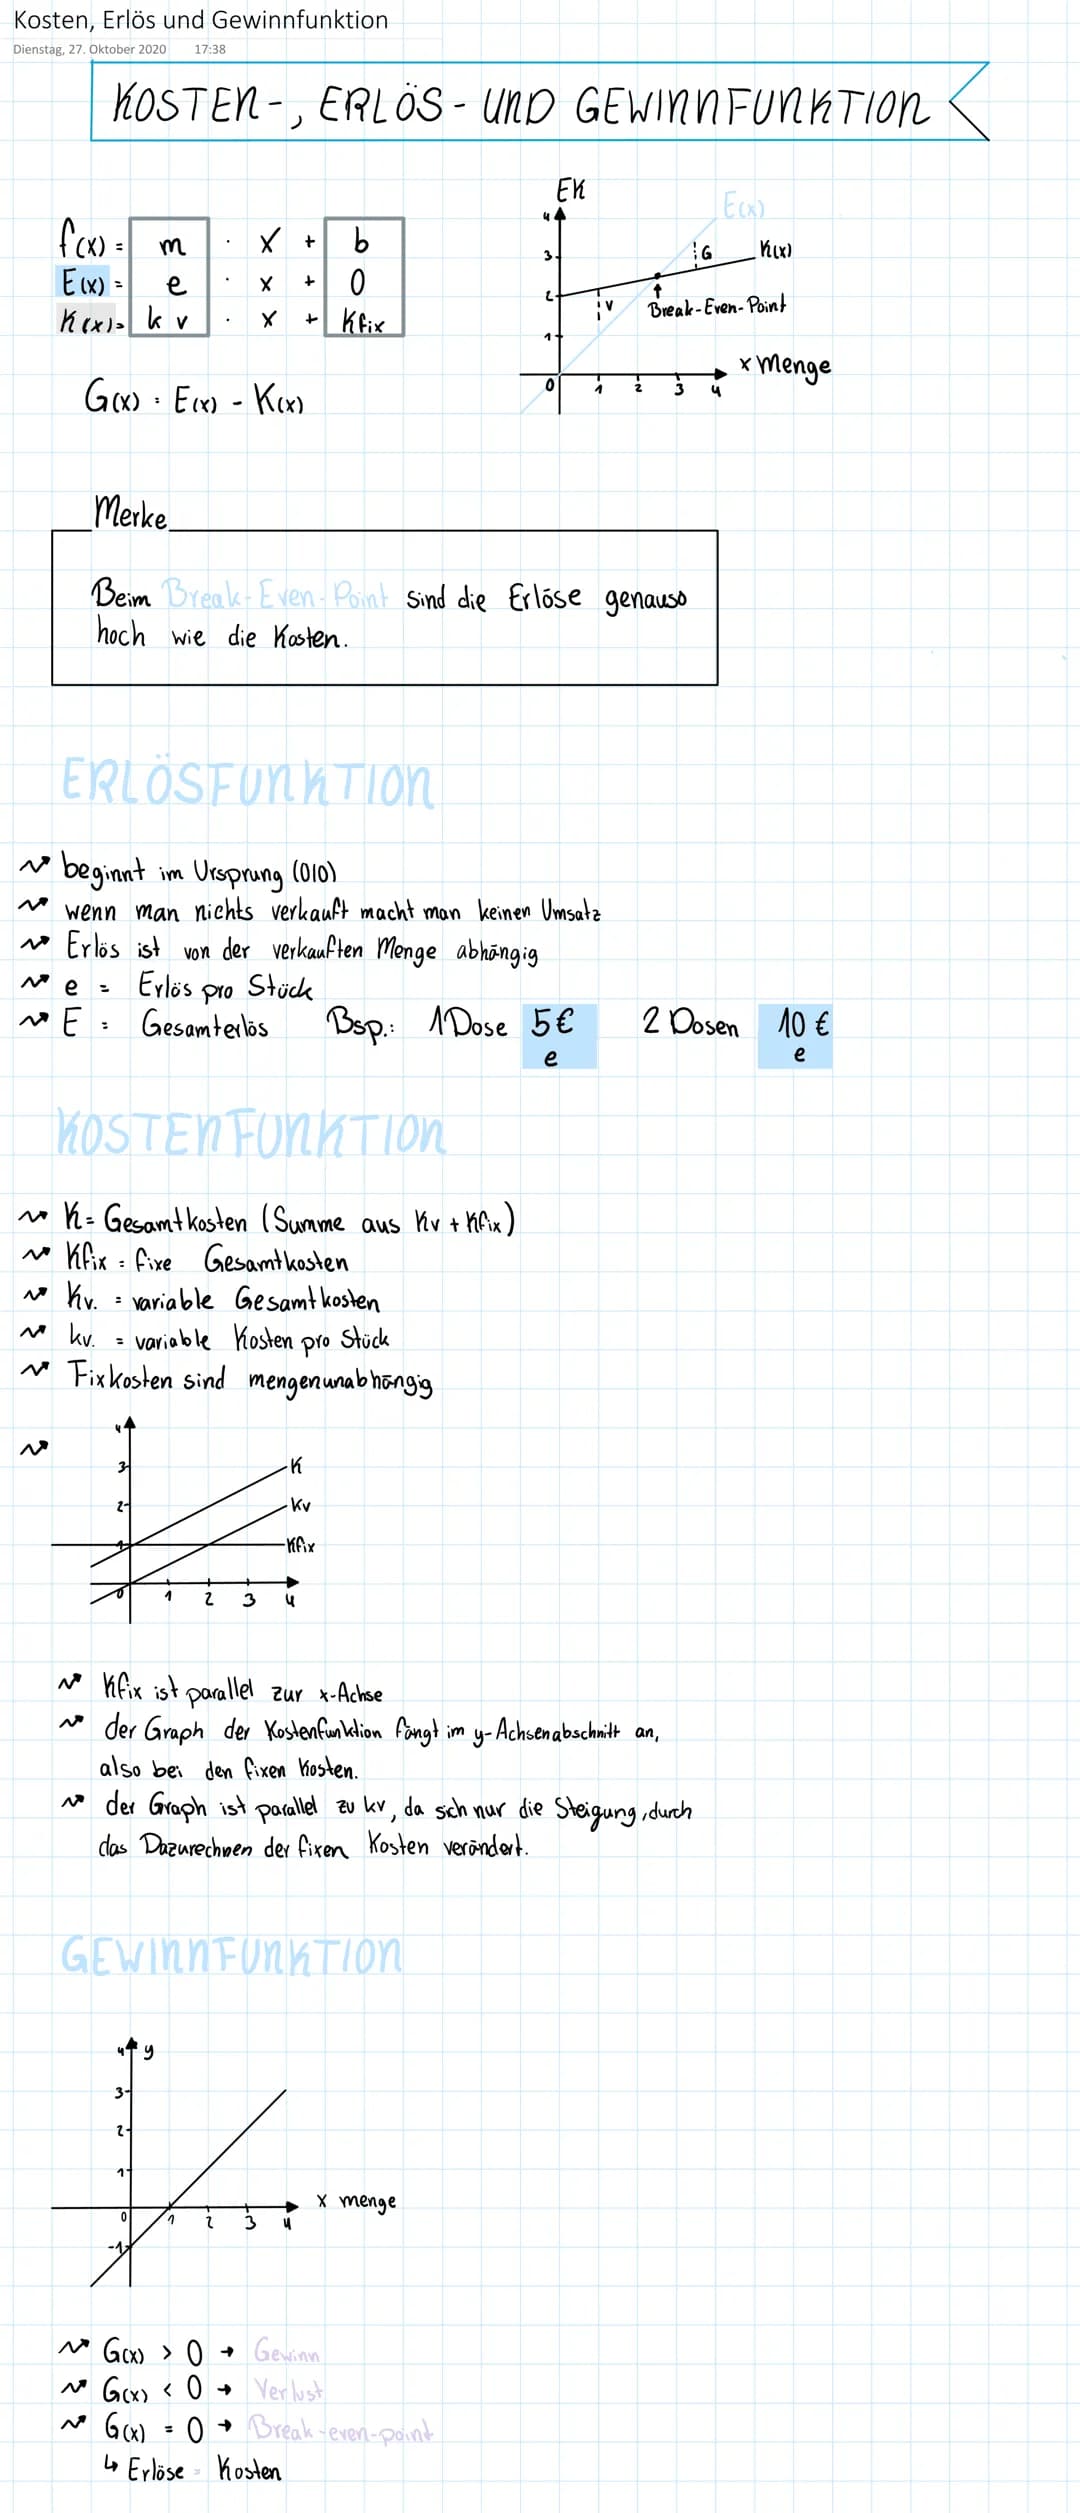 Kosten, Erlös und Gewinnfunktion
Dienstag, 27. Oktober 2020 17:38
KOSTEN-, ERLÖS- UND GEWINNFUNKTION
f(x) = m · x + b
E(x) = e · x + 0
K(x) = kv · x + Kfix
G(x) = E(x) - K(x)
EK
E(x)
4
3
G
K(x)
2
V
Break-Even-Point
1
x Menge
0 1 2 3 4
Merke
Beim Break-Even-Point sind die Erlöse genauso
hoch wie die Kosten.
ERLÖSFUNKTION
beginnt im Ursprung (0|0)
wenn man nichts verkauft macht man keinen Umsatz
Erlös ist von der verkauften Menge abhängig
e = Erlös pro Stück
E = Gesamterlös Bsp.: 1 Dose 5€ 2 Dosen 10 €
e e
KOSTENFUNKTION
K = Gesamtkosten (Summe aus Kv + Kfix)
Kfix = fixe Gesamtkosten
Kv. = variable Gesamtkosten
kv. = variable Kosten pro Stück
Fixkosten sind mengenunabhängig
4
3 K
2 Kv
1 Kfix
0 1 2 3 4
Kfix ist parallel zur x-Achse
der Graph der Kostenfunktion fängt im y-Achsenabschnitt an,
also bei den fixen Kosten.
der Graph ist parallel zu kv, da sich nur die Steigung, durch
das Dazurechnen der fixen Kosten verändert.
GEWINNFUNKTION
4 y
3
2
1
x menge
0 1 2 3 4
-1
G(x) > 0 → Gewinn
G(x) < 0 → Verlust
G(x) = 0 → Break-even-point
↳ Erlöse = Kosten